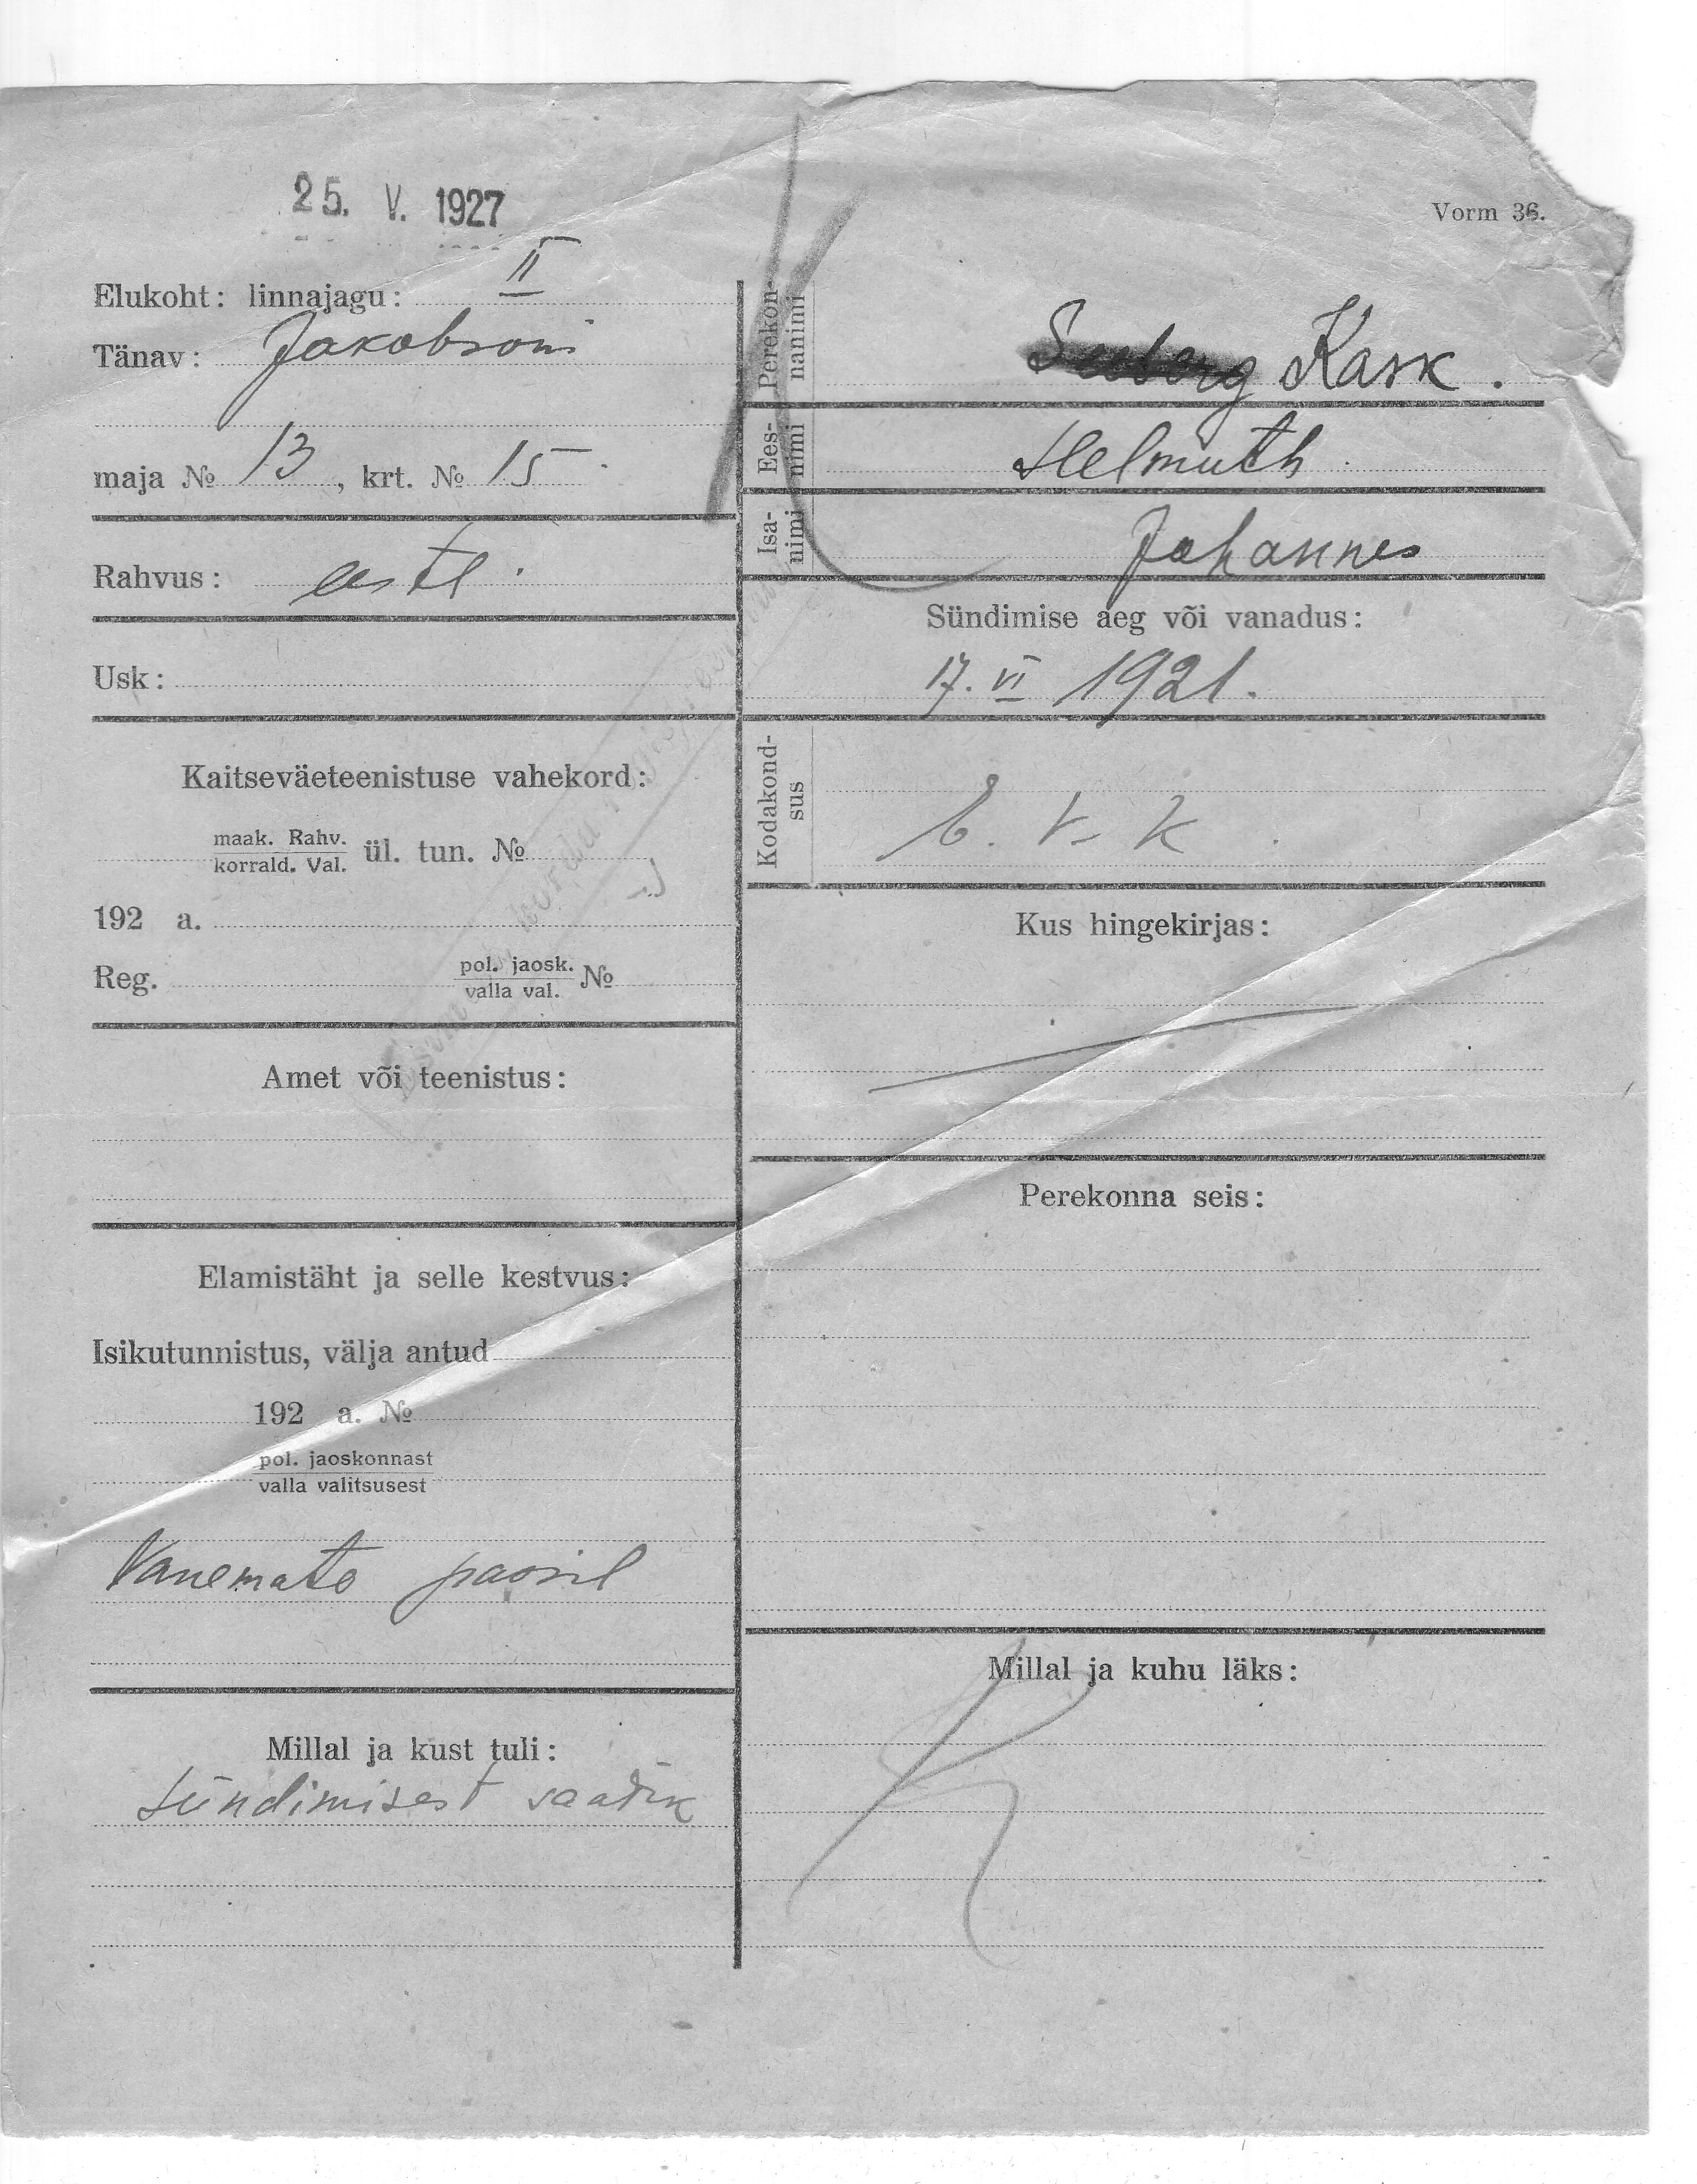 25. V. 1927
Vorm 36.
Elukoht: linnajagu: II
Tänav: Jakobsoni
maja № 13, krt. № 15.
Rahvus: eestl.
Usk:
Kaitseväeteenistuse vahekord:
maak. Rahv.
korrald. Val. ül. tun. №
192 a.
Reg. pol. jaosk. №
valla val.
Amet või teenistus:
Elamistäht ja selle kestvus:
Isikutunnistus, välja antud
192 a. №
pol. jaoskonnast
valla valitsusest
Vanemate passil
Millal ja kust tuli:
sündimisest saadik
Perekon-
nanimi
Seeberg Kask.
Ees-
nimi
Helmuth.
Isa-
nimi
Johannes
Sündimise aeg või vanadus:
17. VI 1921.
Kodakond-
sus
E. V. K.
Kus hingekirjas:
Perekonna seis:
Millal ja kuhu läks: